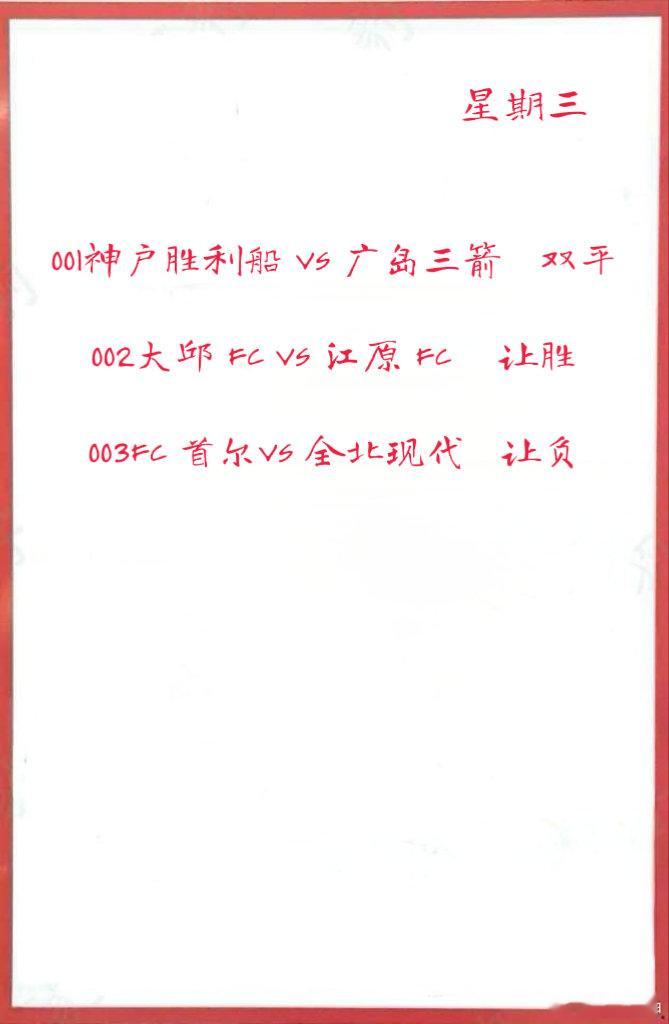 星期三
001神户胜利船 VS 广岛三箭 双平
002大邱 FC VS 江原 FC 让胜
003FC 首尔VS 全北现代 让负